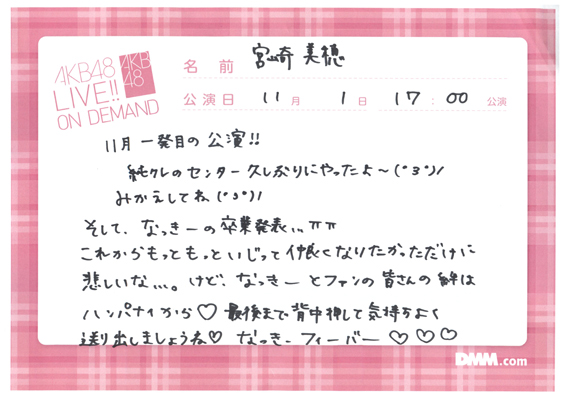 AKB48
LIVE!!
ON DEMAND
AKB
48
名前 宮崎美穂
公演日 11月 1日 17:00 公演
11月一発目の公演!!
純クレのセンター久しぶりにやったよ〜(°3°)/
みかえしてね(°3°)/
そして、なっきーの卒業発表...ㅠㅠ
これからもっともっといじって仲良くなりたかっただけに
悲しいな...。けど、なっきーとファンの皆さんの絆は
ハンパナイから♡ 最後まで背中押して気持ちよく
送り出しましょうね♡ なっきーフィーバー♡♡♡
DMM.com